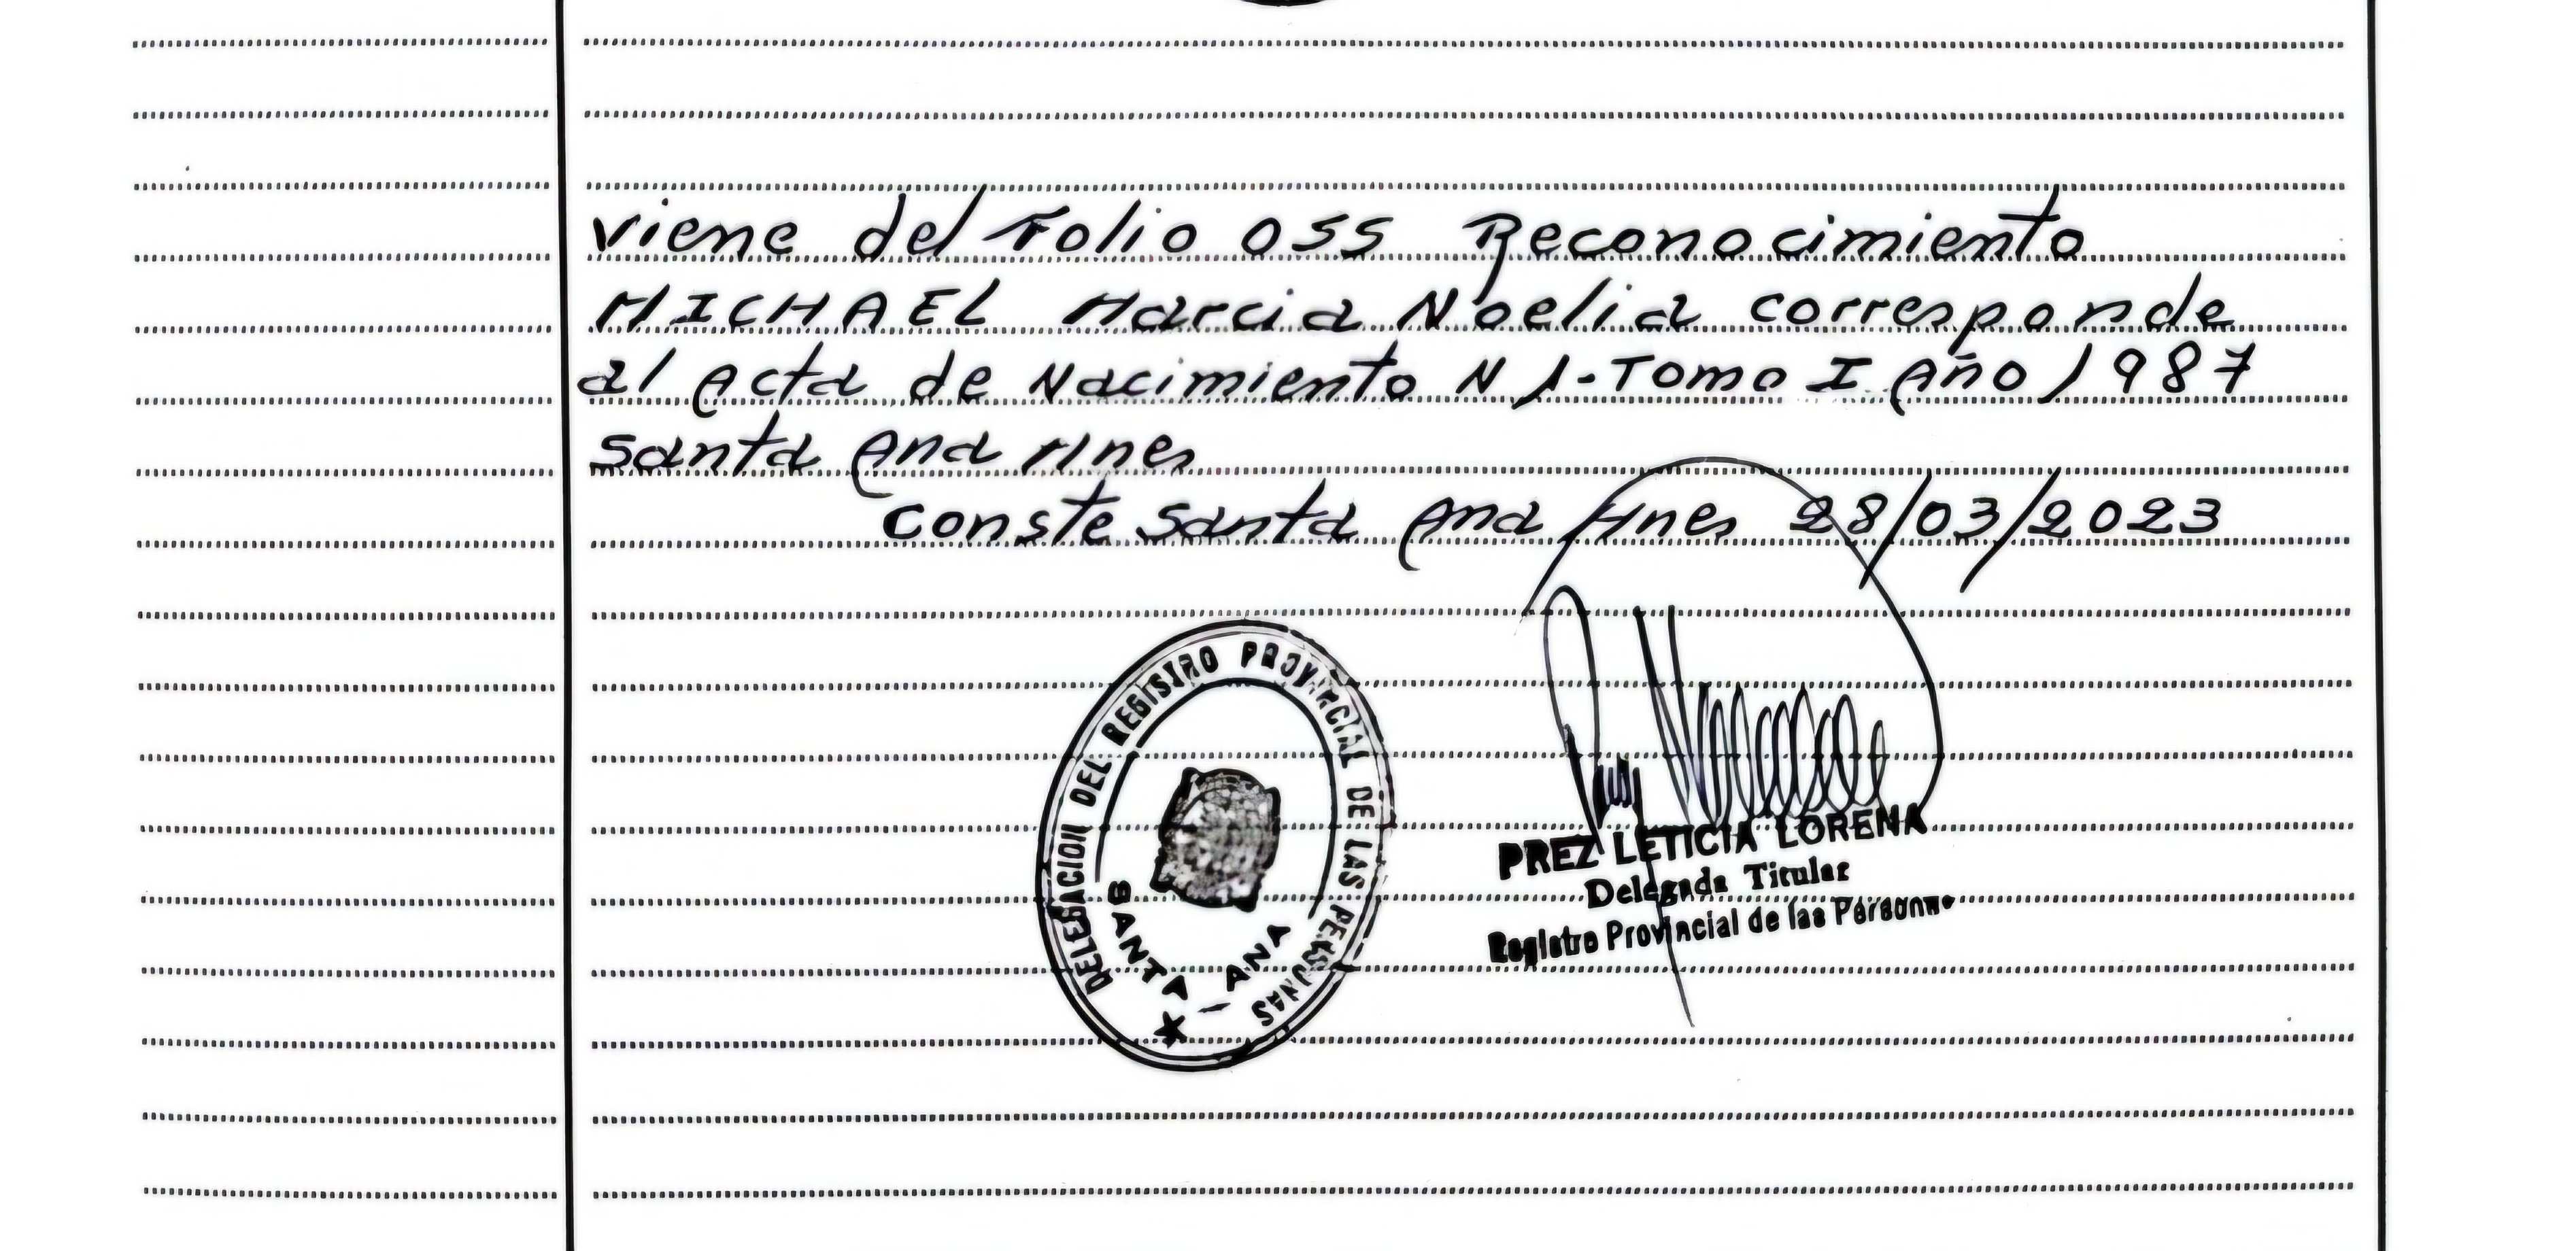 Viene del Folio 055 Reconocimiento
MICHAEL Marcia Noelia corresponde
al Acta de Nacimiento N 1-Tomo I Año 1987
Santa Ana Mnes
Conste Santa Ana Mnes 28/03/2023
DELEGACION DEL REGISTRO PROVINCIAL DE LAS PERSONAS
SANTA - ANA
PREZ LETICIA LORENA
Delegada Titular
Registro Provincial de las Personas